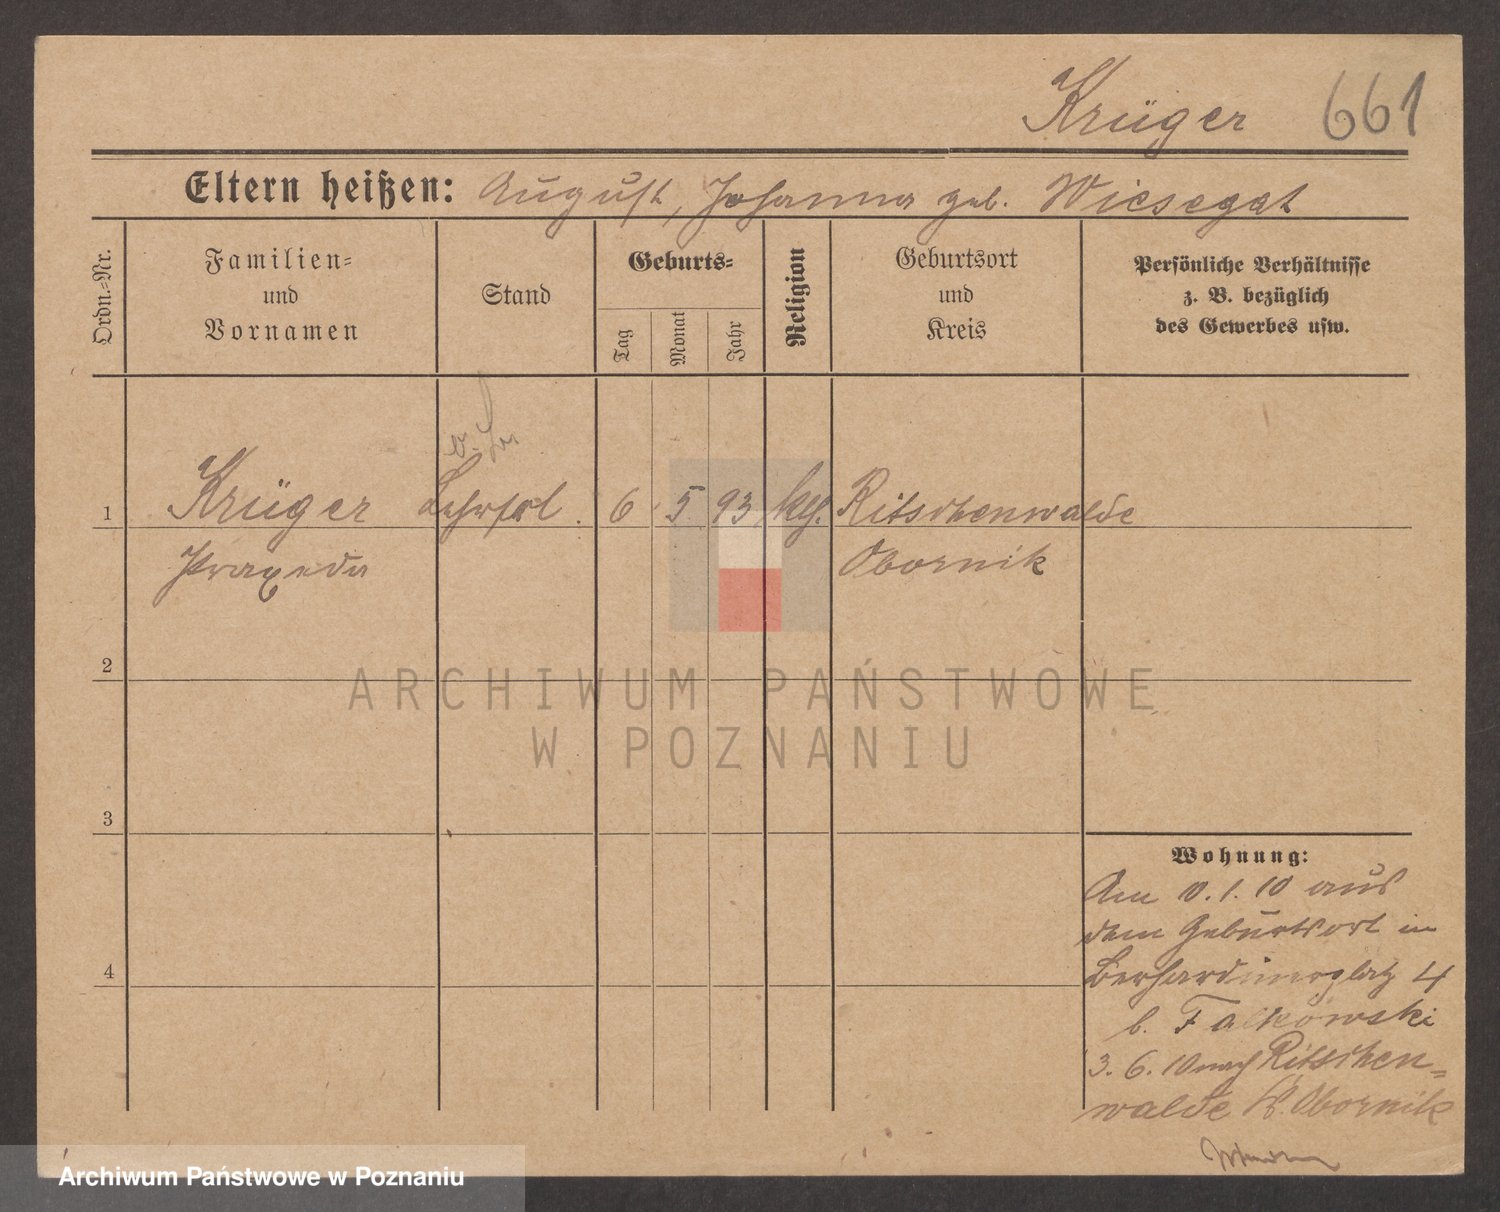 Krüger 661
Eltern heißen: August, Johanna geb. Wiesegat
Ordn.-Nr.
Familien-
und
Vornamen
Stand
Geburts-
Tag
Monat
Jahr
Religion
Geburtsort
und
Kreis
Persönliche Verhältnisse
z. B. bezüglich
des Gewerbes usw.
1 Krüger Lehrfrl. 6 5 93 kth. Ritschenwalde
Praxeda Obornik
2
3
4
Wohnung:
Am 10.1.10 aus
dem Geburtsort in
Berhardinerplatz 4
b. Falkowski
3.6.10 nach Ritschen-
walde Kr. Obornik
ARCHIWUM PAŃSTWOWE
W POZNANIU
Archiwum Państwowe w Poznaniu